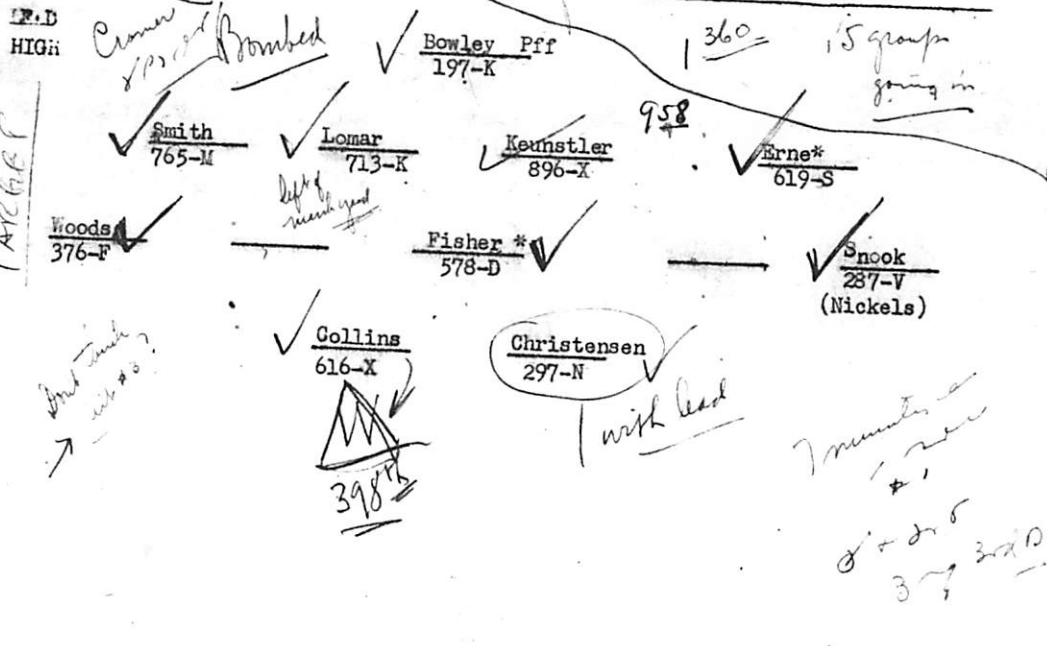 HIGH
Bombed
Bowley Pff
197-K
360
15 groups
going in
958
Smith
765-M
Lomar
713-K
Keunstler
896-X
Erne*
619-S
left of
Woods
376-F
Fisher *
578-D
Snook
287-V
(Nickels)
Collins
616-X
Christensen
297-N
with lead
398th
#1
3rd D